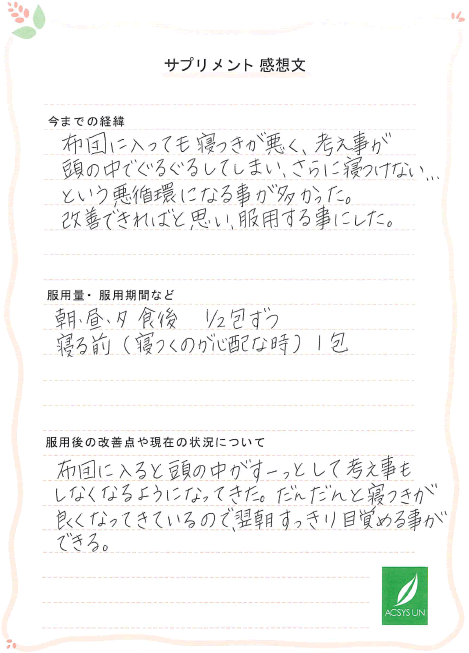 サプリメント 感想文
今までの経緯
布団に入っても寝つきが悪く、考え事が
頭の中でぐるぐるしてしまい、さらに寝つけない...
という悪循環になる事が多かった。
改善できればと思い、服用する事にした。
服用量・服用期間など
朝、昼、夕 食後 1/2包ずつ
寝る前（寝つくのが心配な時）1包
服用後の改善点や現在の状況について
布団に入ると頭の中がすーっとして考え事も
しなくなるようになってきた。だんだんと寝つきが
良くなってきているので、翌朝すっきり目覚める事が
できる。
ACSYS UN